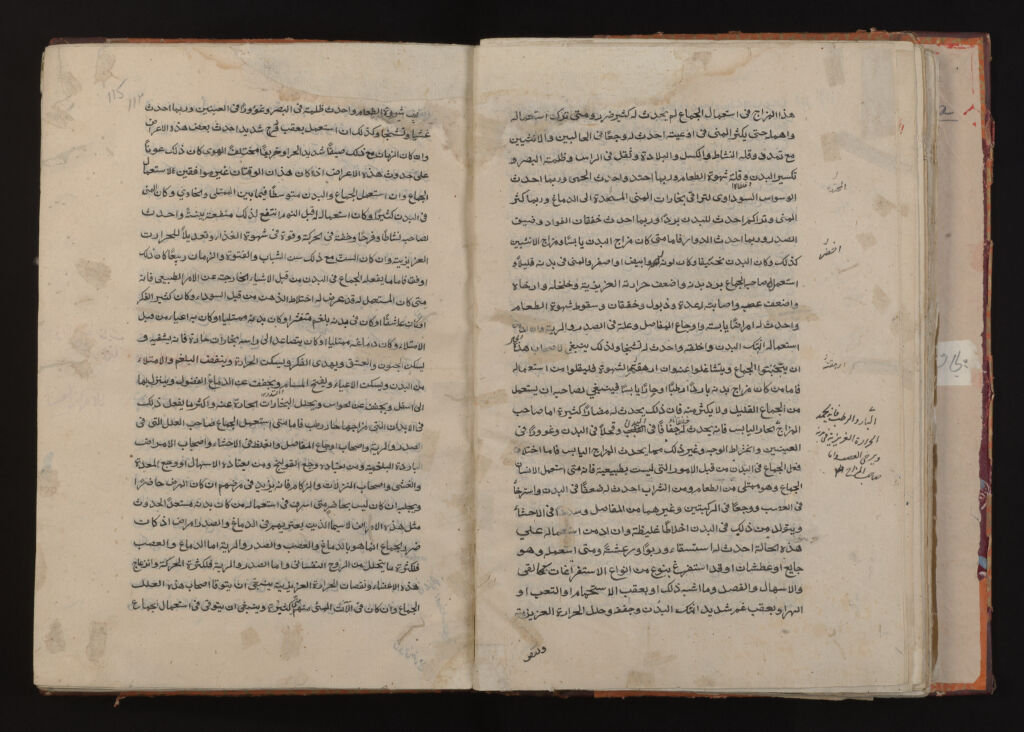 هذا المزاج في استعمال الجماع لم يحدث له كثير ضرر ومتى ترك استعماله
واهمله حتى يكثر المنى في اوعيته احدث له وجعًا في الحالبين والانثيين
مع تمدد وقلة النشاط والكسل والبلادة وثقل في الراس وظلمة البصر و
تكسير البدن وقلة شهوة الطعام وربما احتد واحدث الحمى وربما احدث
الوسواس السوداوى لترا فى بخارات المنى المتعفنة الى الدماغ وربما كثر
المنى وتراكم احدث للبدن بردًا وربما احدث خفقان الفواد وضيق
الصدر وربما احدث الدوار فاما متى كان مزاج البدن يابسًا ومزاج الانثيين
كذلك وكان البدن نحيفًا وكان لونه ابيض او اصفر والمنى في بدنه قليلًا و
استعمل صاحبه الجماع برد بدنه واضعف حرارته الغريزية وخلخله وارخاه
واضعف عصبه واصابته رعدة وذبول وخفقان وسقوط شهوة الطعام
واحدث له امراضًا يابسة واوجاع المفاصل وعلة في الصدر والرية وان
استعماله انهك البدن واخلقه واحدث له تشنجا ولذلك ينبغي لاصحاب هذا
ان يتجنبوا الجماع ويتشاغلوا عنه وان ارهقتهم الشهوة فليقلوا من استعماله
فاما من كان مزاج بدنه باردًا رطبًا وحارًا يابسًا فينبغي لصاحبه ان يستعمل
من الجماع القليل ولا يكثر منه فان ذلك يحدث له مضارًا كثيرة اما صاحب
المزاج الحار اليابس فانه يحدث له جفافًا في العصب وقحلًا في البدن وغوورًا في
العينين وانخراط الوجه وغير ذلك مما يحدث المزاج اليابس فاما اختلاف
فعل الجماع في البدن من قبل الامور التى ليست بطبيعية فانه متى استعمل الانسان
الجماع وهو ممتلى من الطعام ومن الشراب احدث له ضعفًا في البدن واسترخا
في العصب ووجعًا في الركبتين وغيرهما من المفاصل وسددًا في الاحشا
ويتولد من ذلك في البدن اخلاطًا غليظة وان ادمن استعماله على
هذه الحالة احدث له استسقاء وربوًا ورعشة ومتى استعمل وهو
جايع او عطشان او قد استفرغ بنوع من انواع الاستفراغات كالقى
والاسهال والفصد وما اشبه ذلك او بعقب الاستحمام او التعب او
السهر او بعقب غم شديد انهك البدن وجففه وحلل الحرارة الغريزية
واضعف شهوة الطعام واحدث ظلمة في البصر وغوورًا في العينين وربما احدث
غشيًا وتشنجًا وكذلك ان استعمل بعقب فرح شديد احدث بعض هذه الاعراض
وان كان الزمان مع ذلك صيفًا شديد الحر او خريفًا مختلف الهوى كان ذلك عونًا
على حدوث هذه الاعراض اذ كان هذان الوقتان غير موافقين لاستعمال
الجماع وان استعمل الجماع والبدن متوسطًا فيما بين الممتلى والخاوى وكان المنى
في البدن كثيرًا وكان استعماله قبل النوم انتفع لذلك منفعة بينة واحدث
لصاحبه نشاطًا وفرحًا وخفة في الحركة وقوة في شهوة الغذا وتعديلًا للحرارة
الغريزية وان كان السن مع ذلك سن الشباب والفتوة والزمان ربيعًا كان ذلك
اوفق فاما ما يفعله الجماع في البدن من قبل الاشياء الخارجة عن الامر الطبيعي فانه
متى كان المستعمل له قد عرض له اختلاط الذهن من قبل السوداء وكان كثير الفكر
او كان عاشقًا او كان في بدنه بلغم متعفن او كان بدنه ممتليا او كان به اعياء من قبل
الامتلاء وكان دماغه ممتليا او كان يتصاعد الى راسه بخارات حارة فانه يشفيه و
يسكن الجنون والعشق ويهدى الفكر ويسكن الحرارة وينقص البلغم والامتلاء
من البدن ويسكن الاعياء ويفتح المسام ويخفف عن الدماغ الفضول وينزل بها
الى اسفل ويخفف عن الحواس ويحلل البخارات الحارة عنه واكثر ما يفعل ذلك
في الابدان التى مزاجها حار رطب فاما متى استعمل الجماع صاحب العلل التى في
الصدر والرية واصحاب اوجاع المفاصل والغلظ في الاحشاء واصحاب الامراض
الباردة البلغمية ومن يعتاده وجع القولنج ومن يعتاده الاسهال ووجع المعدة
والغشى واصحاب النزلات والزكام فانه يزيد في مرضهم ان كان المرض حاضرا
ويجلبه ان كان ليس بحاضر متى اسرف في استعماله من كان بدنه مستعدًا لحدوث
مثل هذه الامراض لاسيما الذين يعتريهم في الدماغ والصدر امراض اذ كانت
ضرر الجماع انما هو بالدماغ والعصب والصدر والرية اما الدماغ والعصب
فلكثرة ما يتحلل من الروح النفسانى واما الصدر والرية فلكثرة الحركة وانزعاج
هذه الاعضاء ونقصان الحرارة الغريزية ينبغي ان يتوقا اصحاب هذه العلل
الجماع وان كان في الات المنى منهم كثيرة وينبغي ان يتوقى في استعمال الجماع